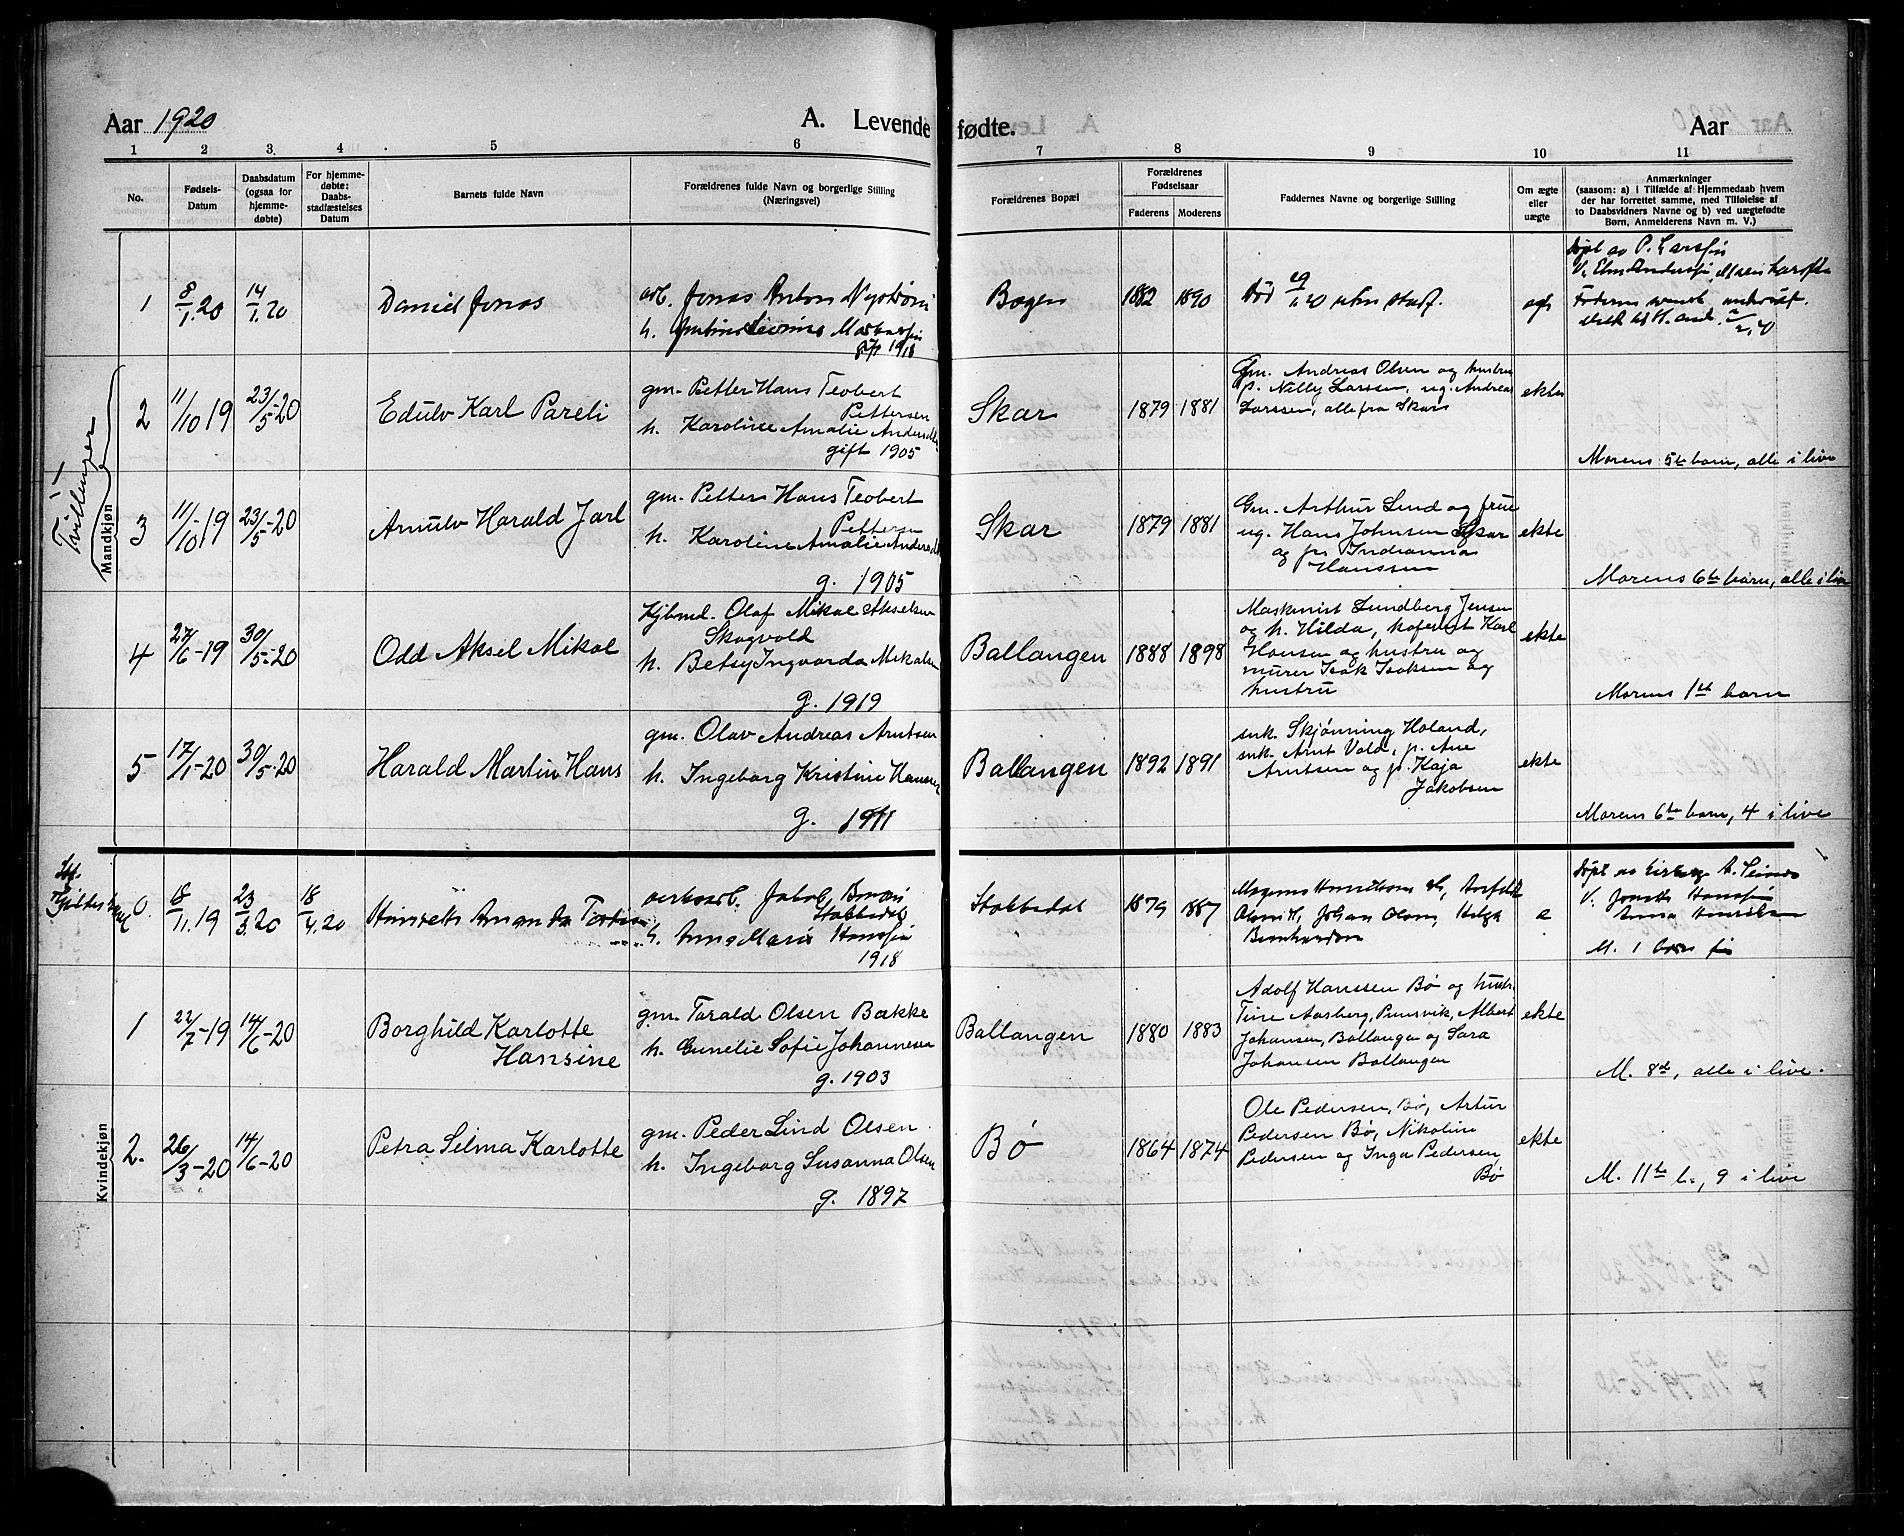 Aar 1920
A. Levende fødte.
Aar
1 2 3 4 5 6 7 8 9 10 11
No.
Fødsels-
Datum
Daabsdatum
(ogsaa for
hjemme-
døbte)
For hjemme-
døbte:
Daabs-
stadfæstelses
Datum
Barnets fulde Navn
Forældrenes fulde Navn og borgerlige Stilling
(Næringsvei)
Forældrenes Bopæl
Forældrenes
Fødselsaar
Faderens Moderens
Faddernes Navne og borgerlige Stilling
Om ægte
eller
uægte
Anmærkninger
(saasom: a) i Tilfælde af Hjemmedaab hvem
der har forrettet samme, med Tilføielse af
to Daabsvidners Navne og b) ved uægtefødte
Børn, Anmelderens Navn m. V.)
Mandkjøn
Tvillinger
1
8/1.20
14/1.20
Daniel Jonas
arb. Jonas Anton
h.
1918
Bogen
1882 1890
Død
2
11/10 19
23/5-20
Edulv Karl Pareli
gm. Petter Hans Teobert
Pettersen
h. Karoline Amalie
gift 1905
Skar
1879 1881
Gm. Andreas Olsen og hustru
p. Nelly Larssen, ug. Andreas
Larssen, alle fra Skar
ekte
Morens 5te barn, alle i live
3
11/10-19
23/5-20
Arnulv Harald Jarl
gm. Petter Hans Teobert
Pettersen
h. Karoline Amalie
g. 1905
Skar
1879 1881
Gm. Arthur Lind og frue
ug. Hans Johnsen Skar
og pi.
Hanssen
ekte
Morens 6te barn, alle i live
4
27/6-19
30/5-20
Odd Aksel Mikal
Kjbmd. Olaf Mikal Akselsen
Skogvold
h. Betsy Ingvarda Mikalsen
g. 1919
Ballangen
1888 1898
Maskinist Lundberg Jensen
og h. Hilda, Karl
Hansen og hustru og
murer Isak Isaksen og
hustru
ekte
Morens 1st barn
5
17/1-20
30/5-20
Harald Martin Hans
gm. Olav Andreas Arntsen
h. Ingeborg Kristine Hansen
g. 1911
Ballangen
1892 1891
enk. Skjønning Holand,
enk. Arnt Vold, p. Ane
Arntsen og p. Kaja
Jakobsen
ekte
Morens 6te barn, 4 i live
Kvindekjøn
0.
18/11.19
23/3.20
18/4.20
Amanda
Jakob
Stobbedal
h. Anna Marie Hanssen
1918
Stobbedal
1879 1887
Johan Olsen, Helga
e
M. 1 barn
1
22/7-19
14/6-20
Borghild Karlotte
Hansine
gm. Torald Olsen Bakke
h. Gunelie Sofie Johannesen
g. 1903
Ballangen
1880 1883
Adolf Hanssen Bø og hustr.
Tine Aasberg, Pumsvik, Albert
Johansen, Ballangen og Sara
Johansen Ballangen
ekte
M. 8de, alle i live.
2.
26/3-20
14/6-20
Petra Selma Karlotte
gm. Peder Lind Olsen.
h. Ingeborg Susanna Olsen
g. 1897
Bø
1864 1874
Ole Pedersen, Bø, Artur
Pedersen Bø, Nikoline
Pedersen og Inga Pedersen
Bø
ekte
M. 11te b., 9 i live